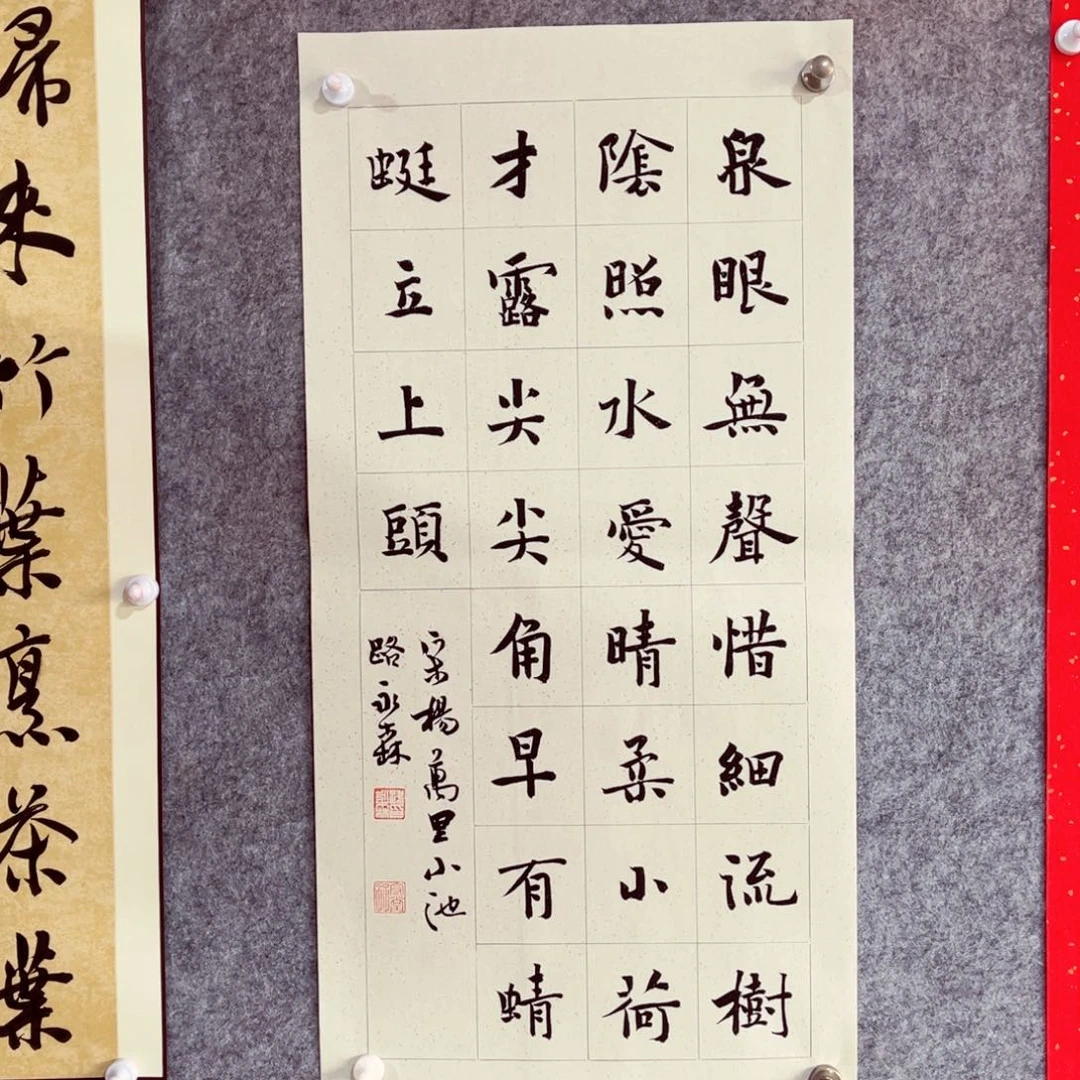 泉眼無聲惜細流樹
陰照水愛晴柔小荷
才露尖尖角早有蜻
蜓立上頭
宋楊萬里小池
路永森
来竹葉烹茶葉